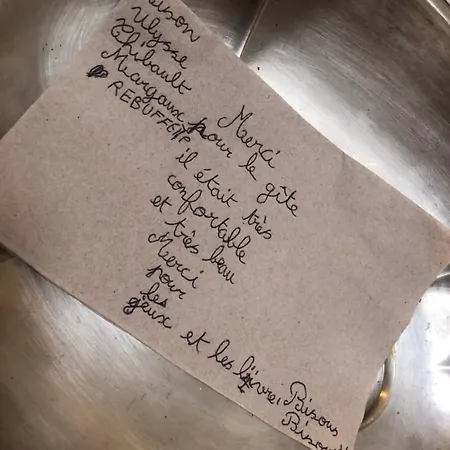 Ulysse
Thibault
Margaux
REBUFFE
Merci
pour le gîte
il était très
confortable
et très beau
Merci
pour
les
geux et les livre
Bisous